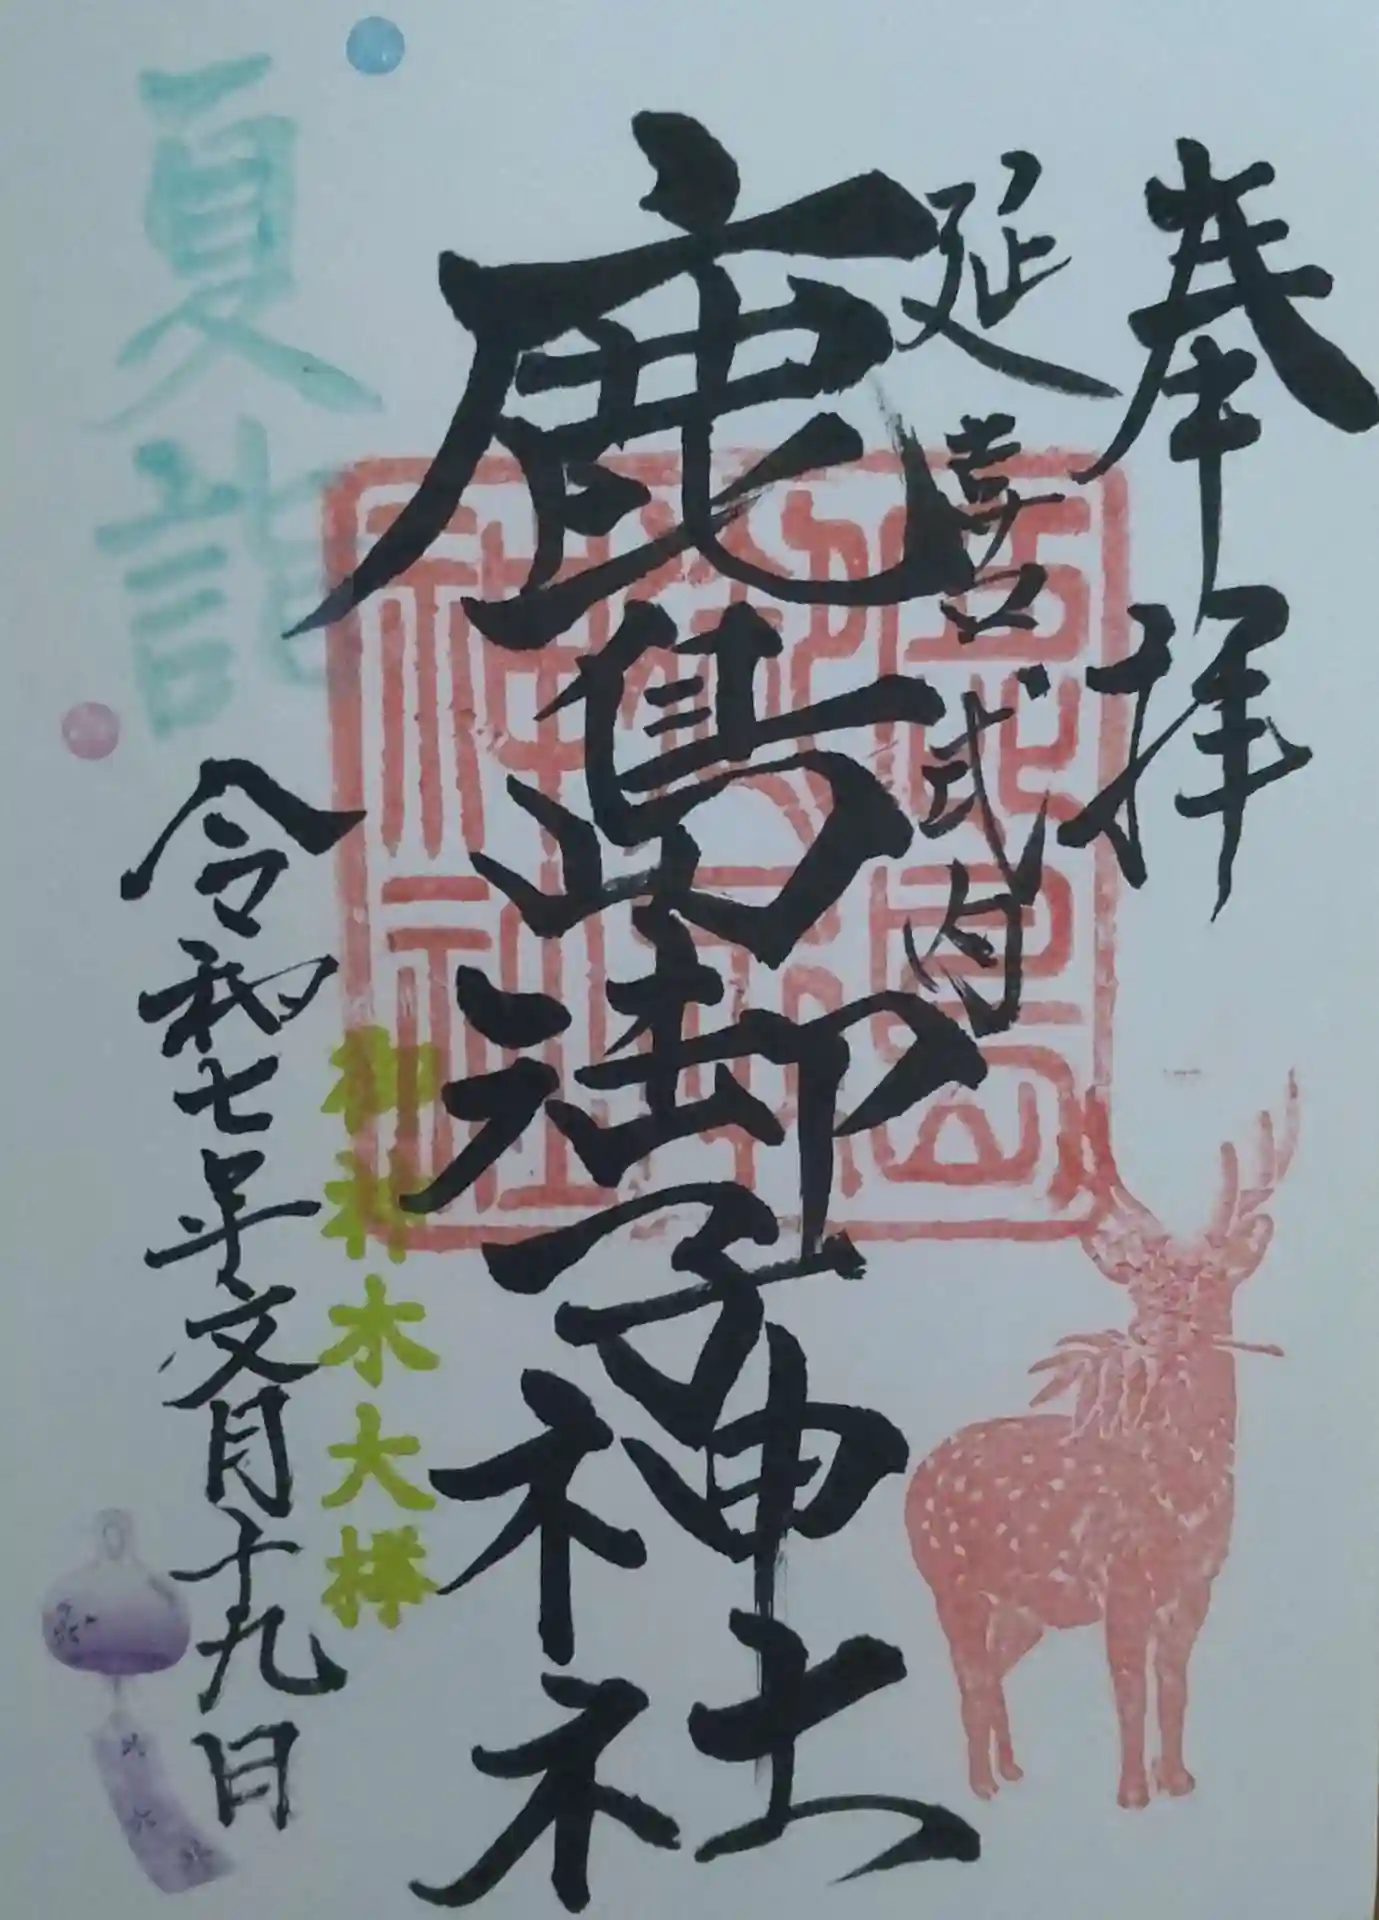 奉拝
延喜式内
鹿島御子神社
御神木大欅
令和七年文月十九日
夏詣